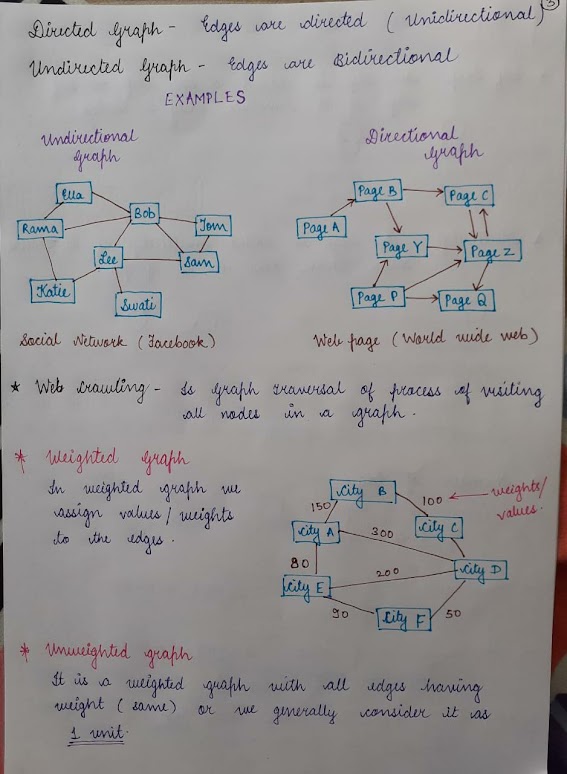 3
Directed Graph - Edges are directed (Unidirectional)
Undirected Graph - Edges are Bidirectional
EXAMPLES
Undirectional
Graph
Ella
Bob
Rama
Tom
Lee
Sam
Katie
Swati
Social Network (Facebook)
Directional
Graph
Page B
Page C
Page A
Page Y
Page Z
Page P
Page Q
Web page (World wide web)
* Web Crawling - Is graph traversal of process of visiting
all nodes in a graph.
* Weighted Graph
In weighted graph we
assign values/weights
to the edges.
City B
150
100
weights/
values.
City A
City C
300
80
City D
200
City E
90
City F
50
* Unweighted graph
It is a weighted graph with all edges having
weight (same) or we generally consider it as
1 unit.